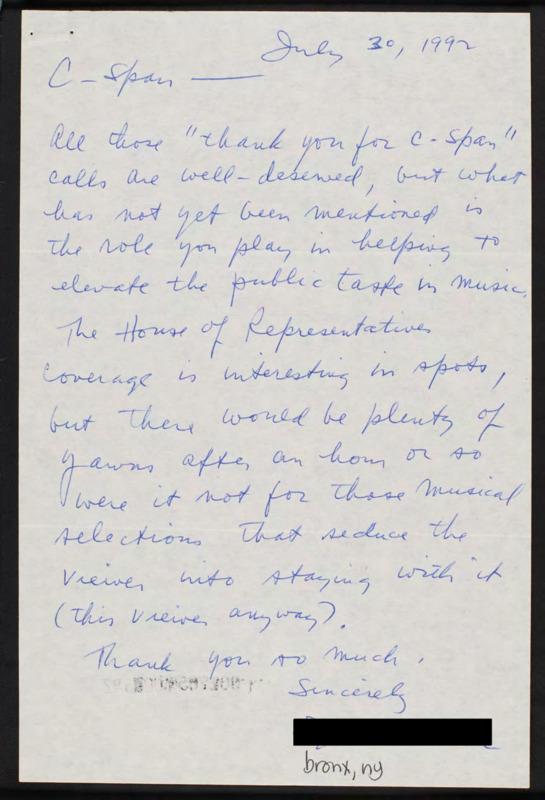 July 30, 1992
C-Span —
All those "thank you for C-Span"
calls are well-deserved, but what
has not yet been mentioned is
the role you play in helping to
elevate the public taste in music.
The House of Representatives
coverage is interesting in spots,
but there would be plenty of
yawns after an hour or so
were it not for those musical
selections that seduce the
viewer into staying with it
(this viewer anyway).
Thank you so much.
Sincerely
bronx, ny